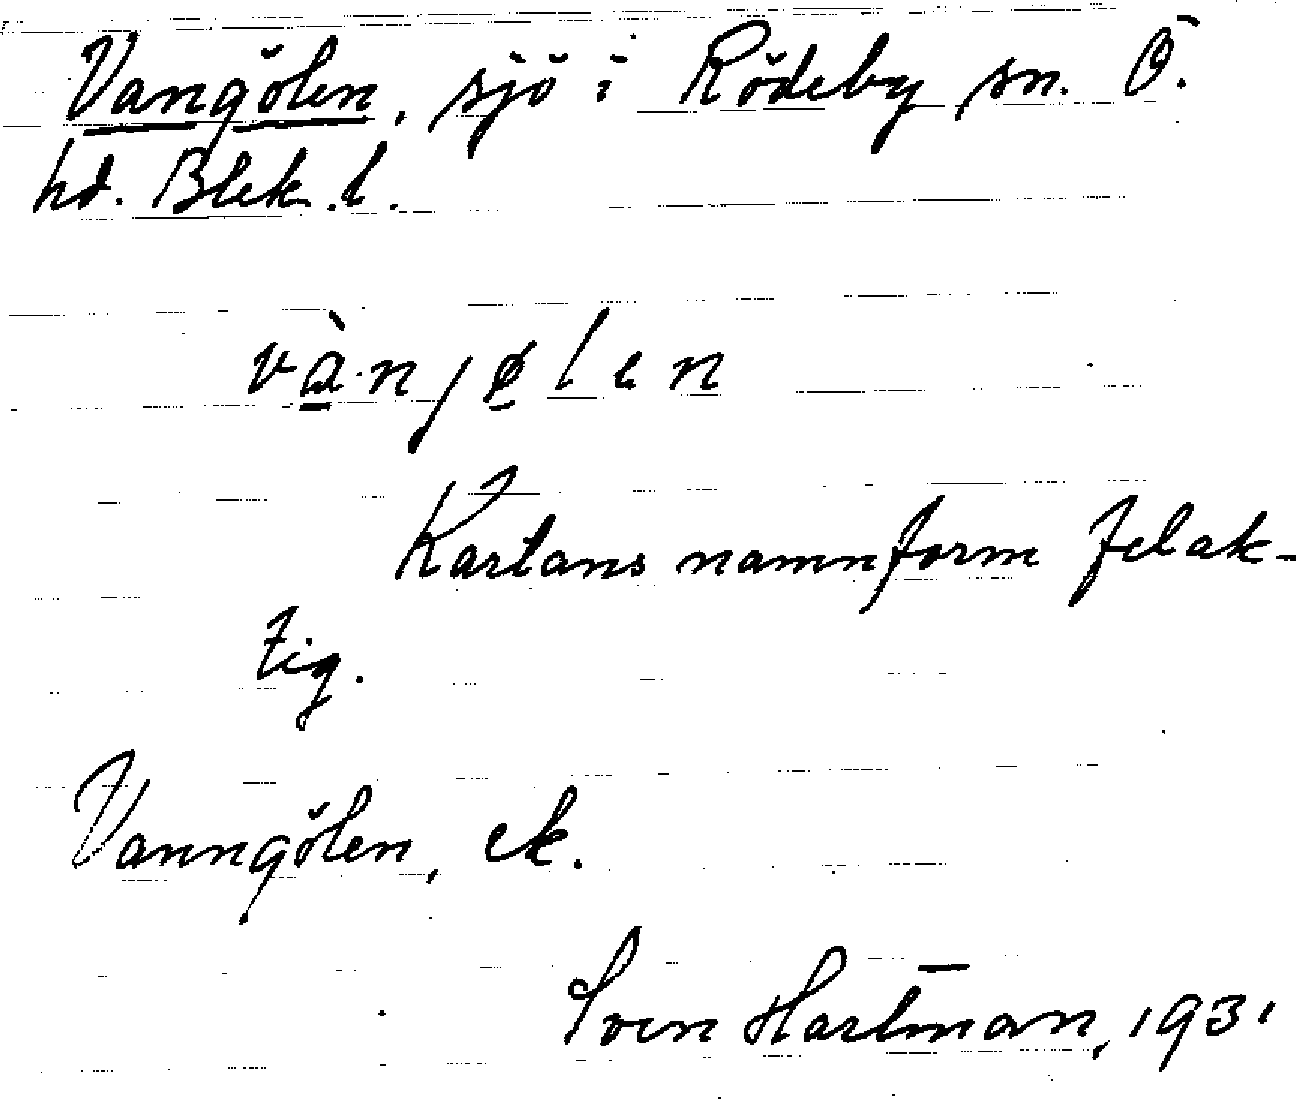 Vangölen, sjö i Rödeby sn. Ö.
hd. Blek. l.
vàn jølen
Kartans namnform felak-
tig.
Vanngölen, ek.
Sven Hartman, 1931